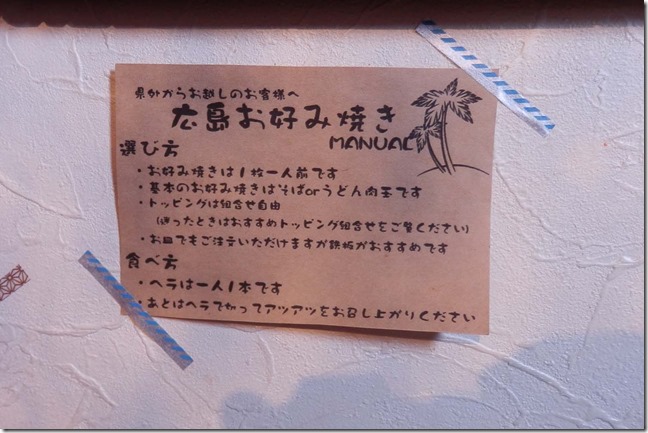 県外からお越しのお客様へ
広島お好み焼き
MANUAL
選び方
・お好み焼きは1枚一人前です
・基本のお好み焼きはそばorうどん肉玉です
・トッピングは組合せ自由
(迷ったときはおすすめトッピング組合せをご覧ください)
・お皿でもご注文いただけますが鉄板がおすすめです
食べ方
・ヘラは一人1本です
・あとはヘラで切ってアツアツをお召し上がりください